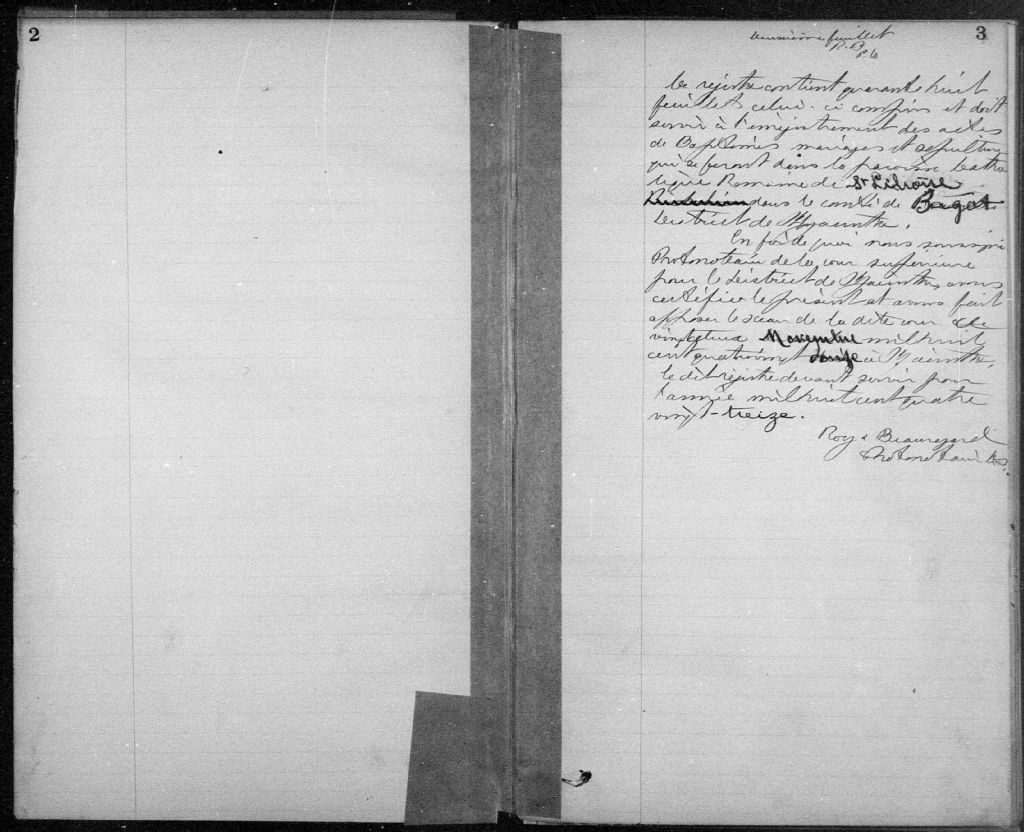 2
3
deuxième feuillet
R. B
P. C.
Ce registre contient quarante huit
feuillets celui-ci compris et doit
servir à l'enrégistrement des actes
de Baptêmes mariages et sépultures
qui se feront dans la paroisse Catho
lique Romaine de St Liboire
dans le comté de Bagot
District de St Hyacinthe.
En foi de quoi nous soussigné
Protonotaire de la cour supérieure
pour le district de St Hyacinthe, avons
certifié le présent et avons fait
apposer le sceau de la dite cour ce
vingt deux Novembre mil huit
cent quatrevingt douze à St Hyacinthe,
le dit régistre devant servir pour
l'année mil huit cent quatre
vingt-treize.
Roy & Beauregard
Protonotaire